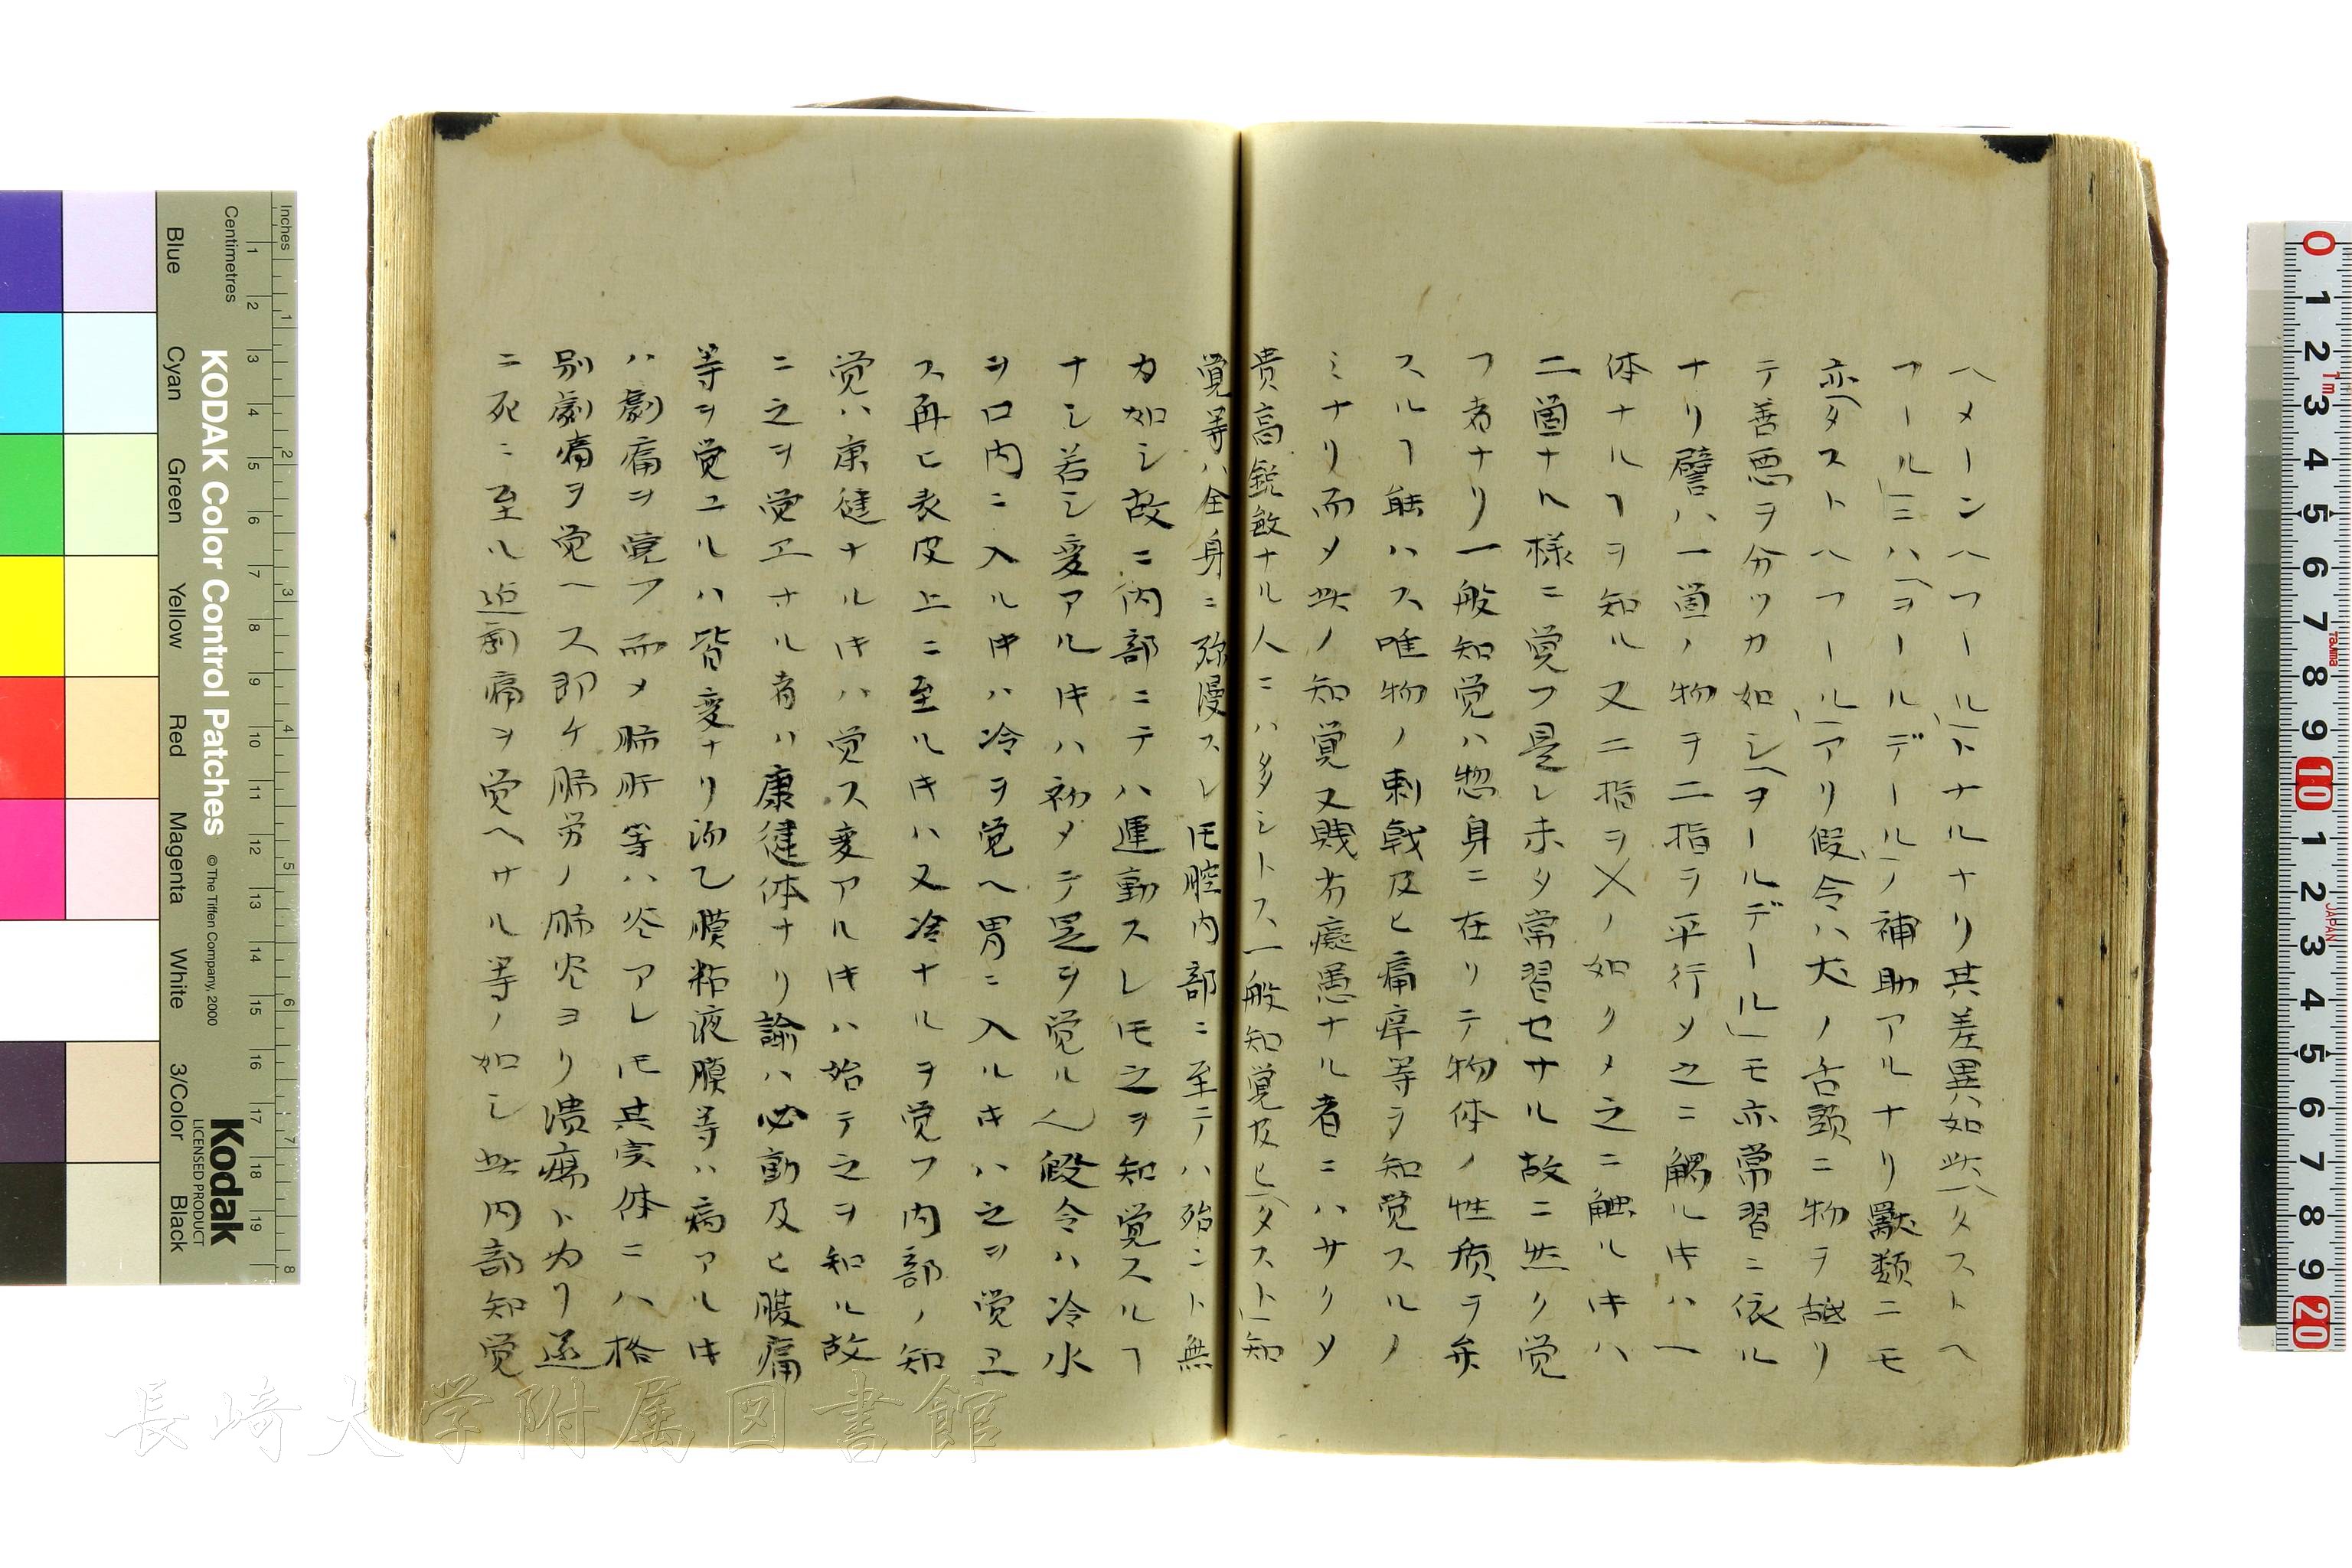 ハメーンヘフール」トナルナリ其差異如此「タストヘ
フール」ニハ「ヲールデール」ノ補助アルナリ獸類ニモ
亦「タストヘフール」アリ假令ハ犬ノ舌頭ニ物ヲ舐リ
テ善悪ヲ分ツカ如シ「ヲールデール」モ亦常習ニ依ル
ナリ譬ハ一箇ノ物ヲ二指ヲ平行メ之ニ觸ルキハ一
体ナルヿヲ知ル又二指ヲ乂ノ如クメ之ニ触ルキハ
二箇ナル様ニ覚フ是レ未タ常習セサル故ニ然ク覚
フ者ナリ一般知覚ハ惣身ニ在リテ物体ノ性质ヲ弁
スルヿ能ハス唯物ノ刺戟及ヒ痛痒等ヲ知覚スルノ
ミナリ而メ此ノ知覚又賎劣癡愚ナル者ニハサクメ
貴高鋭敏ナル人ニハ多シトス一般知覚及ヒ「タスト」知
覚等ハ全身ニ弥漫スレ𪜈腔内部ニ至テハ殆ント無
カ如シ故ニ内部ニテハ運動スレ𪜈之ヲ知覚スルヿ
ナシ若シ変アルキハ初メテ是ヲ覚ル也假令ハ冷水
ヲ口内ニ入ルキハ冷ヲ覚ヘ胃ニ入ルキハ之ヲ覚エ
ス再ヒ表皮上ニ至ルキハ又冷ナルヲ覚フ内部ノ知
覚ハ康健ナルキハ覚ス変アルキハ始テ之ヲ知ル故
ニ之ヲ覚エサル者ハ康健体ナリ諭ハ必動及ヒ腹痛
等ヲ覚ユルハ皆変ナリ沕乙膜粘液膜等ハ病アルキ
ハ劇痛ヲ覚フ而メ肺肝等ハ炎アレ𪜈其実体ニハ格
別劇痛ヲ覚ヘス即ケ肺労ノ肺炎ヨリ潰瘍ト为リ遂
ニ死ニ至ル迠劇痛ヲ覚ヘサル等ノ如シ此内部知覚
長崎大学附属図書館
KODAK Color Control Patches
© The Tiffen Company, 2000
Kodak
LICENSED PRODUCT
Inches
Centimetres
Blue
Cyan
Green
Yellow
Red
Magenta
White
3/Color
Black